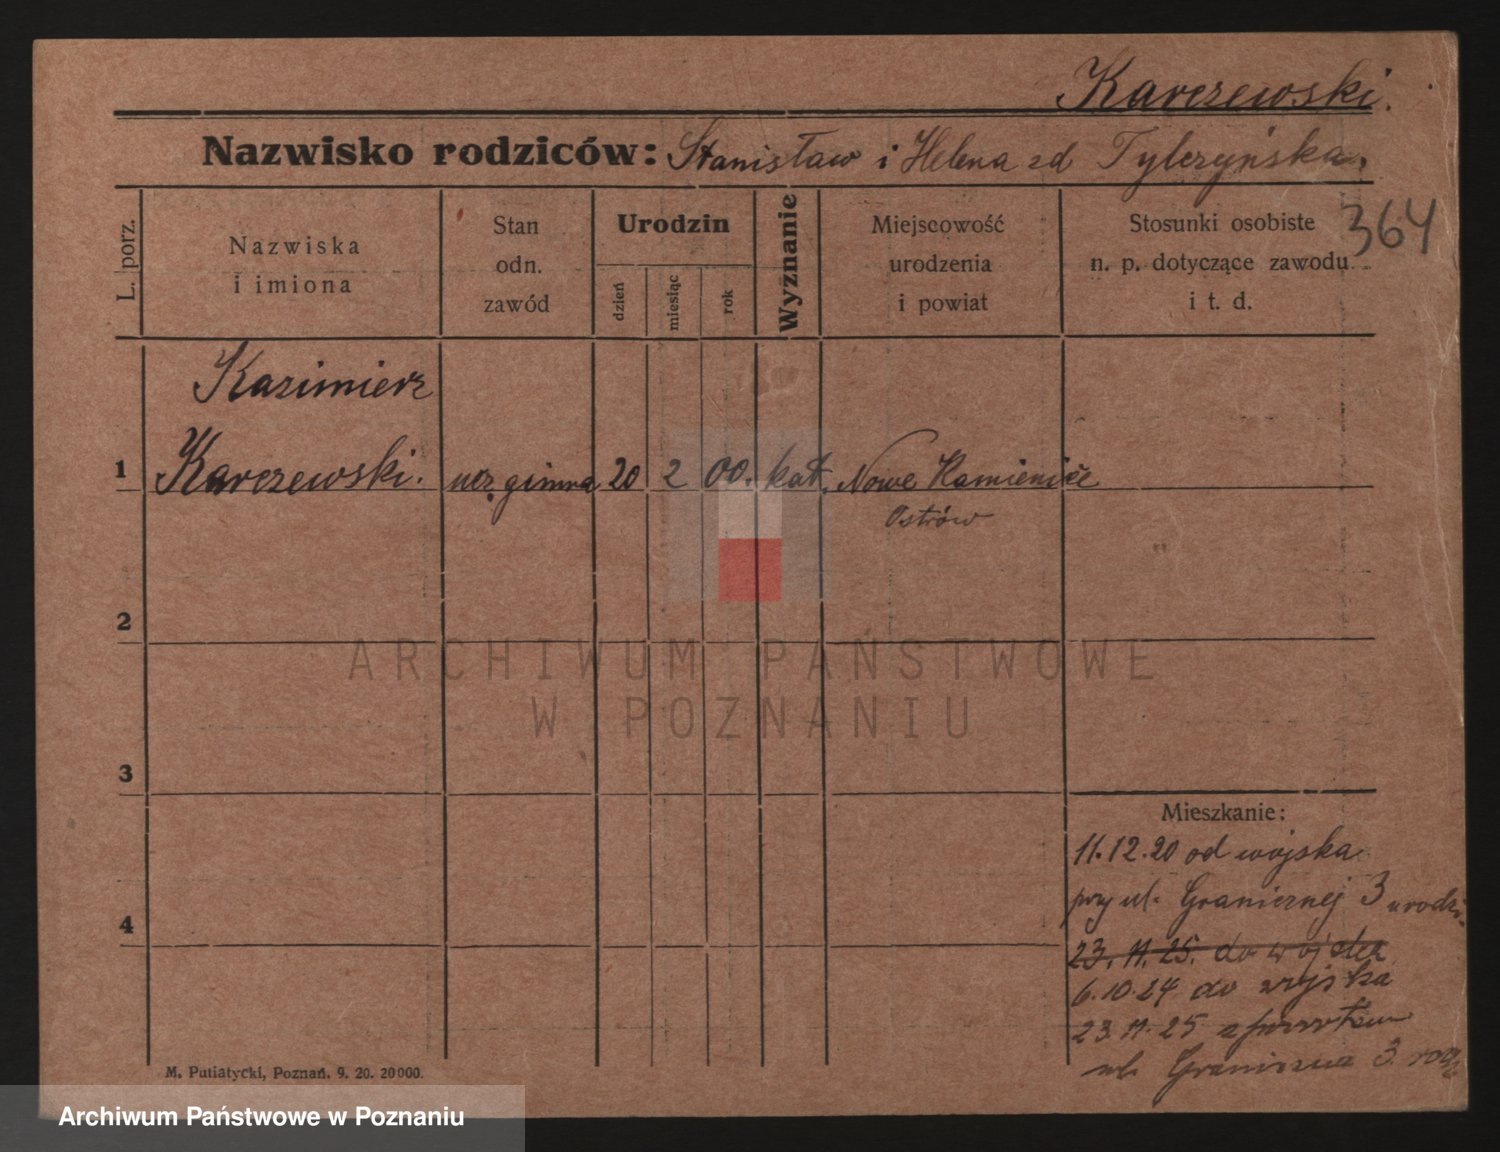 Karczewski.
Nazwisko rodziców: Stanisław i Helena zd Tylczyńska.
364
L. porz.
Nazwiska
i imiona
Stan
odn.
zawód
Urodzin
dzień
miesiąc
rok
Wyznanie
Miejscowość
urodzenia
i powiat
Stosunki osobiste
n. p. dotyczące zawodu
i t. d.
Kazimierz
1 Karczewski. ucz. gimna 20 2 00. kat. Nowe Kamienice
Ostrów
2
ARCHIWUM PAŃSTWOWE
W POZNANIU
3
Mieszkanie:
11.12.20 od wojska
przy ul. Granicznej 3 u rodzi.
4
23. 11. 25. do wojska
6.10.24 do wojska
23.11.25 z powrotem
ul. Graniczna 3.
M. Putiatycki, Poznań. 9. 20. 20000.
Archiwum Państwowe w Poznaniu